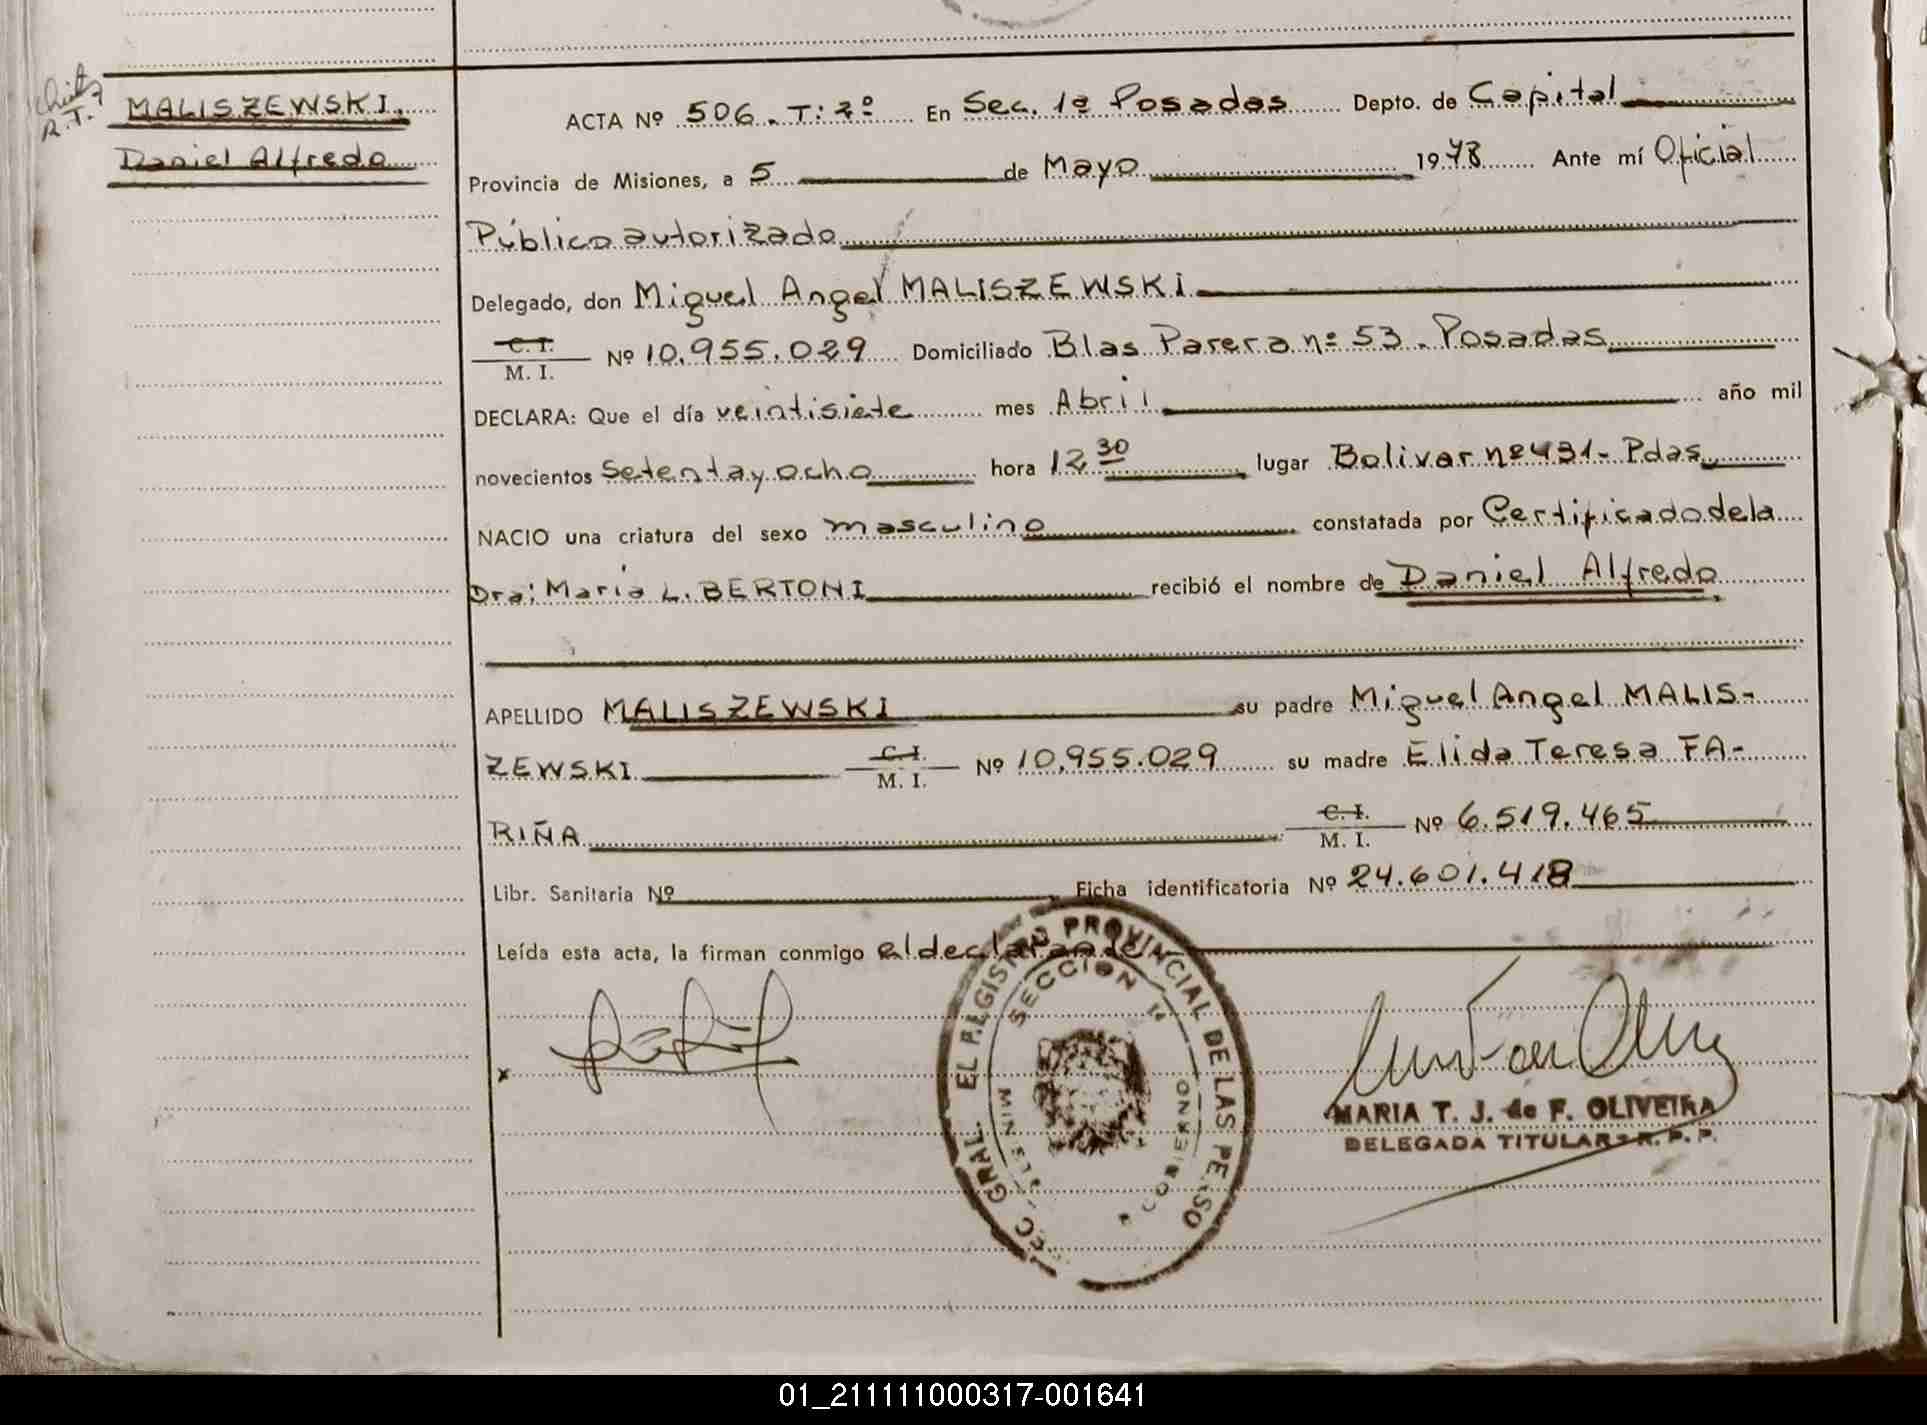 MALISZEWSKI,
Daniel Alfredo
R.T.
ACTA Nº 506. T: 2º En Sec. 1ª Posadas Depto. de Capital
Provincia de Misiones, a 5 de Mayo 1978 Ante mí Oficial
Público autorizado
Delegado, don Miguel Angel MALISZEWSKI
C. I.
M. I. Nº 10.955.029 Domiciliado Blas Parera nº 53. Posadas
DECLARA: Que el día veintisiete mes Abril año mil
novecientos Setenta y ocho hora 12 30 lugar Bolivar nº 431- Pdas
NACIO una criatura del sexo masculino constatada por Certificado de la
Dra: Maria L. BERTONI recibió el nombre de Daniel Alfredo
APELLIDO MALISZEWSKI su padre Miguel Angel MALIS-
ZEWSKI C. I. M. I. Nº 10.955.029 su madre Elida Teresa FA-
RIÑA C. I. M. I. Nº 6.519.465
Libr. Sanitaria Nº Ficha identificatoria Nº 24.601.418
Leída esta acta, la firman conmigo el declarante
SEC. GRAL. EL REGISTRO PROVINCIAL DE LAS PERSO
SECCION 1ª
GOBIERNO
MARIA T. J. de F. OLIVEIRA
DELEGADA TITULAR - R. P. P.
01_211111000317-001641